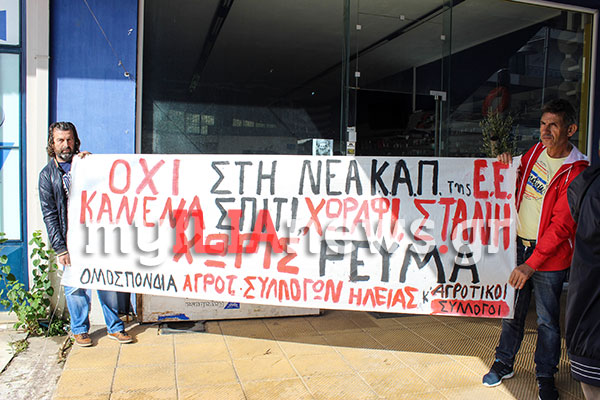 ΟΧΙ ΣΤΗ ΝΕΑ Κ.Α.Π. της Ε.Ε.
ΚΑΝΕΝΑ ΣΠΙΤΙ, ΧΩΡΑΦΙ, ΣΤΑΝΗ
ΧΩΡΙΣ ΡΕΥΜΑ
myΗΛΙΑnews.gr
ΟΜΟΣΠΟΝΔΙΑ ΑΓΡΟΤ. ΣΥΛΛΟΓΩΝ ΗΛΕΙΑΣ κ' ΑΓΡΟΤΙΚΟΙ
ΣΥΛΛΟΓΟΙ